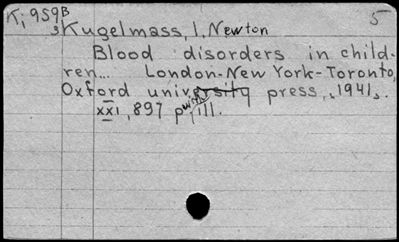 K, 959B 5
Kugelmass, I. Newton
Blood disorders in child-
ren... London-New York-Toronto,
Oxford university press, 1941.
xxi, 897 p. with ill.